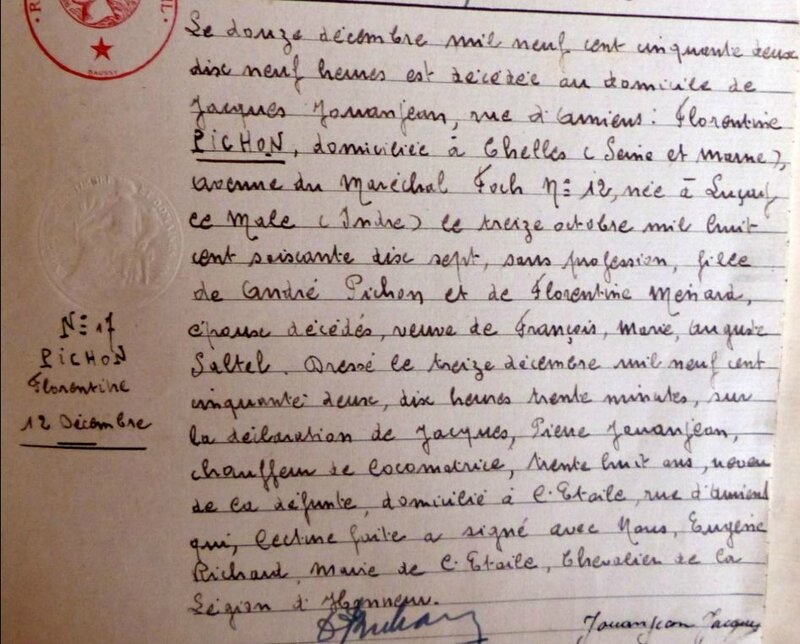 Le douze décembre mil neuf cent cinquante deux
disc neuf heures est décédée au domicile de
Jacques Jouanjean, rue d'Amiens : Florentine
PICHON, domiciliée à Chelles (Seine et Marne),
avenue du Maréchal Foch N° 12, née à Luçay
le Male (Indre) le treize octobre mil huit
cent soiscante disc sept, sans profession, fille
de André Pichon et de Florentine Menard,
épouse décédés, veuve de François, Marie, Auguste
Saltel. Dressé le treize décembre mil neuf cent
cinquante deux, disc heures trente minutes, sur
la déclaration de Jacques, Pierre Jouanjean,
chauffeur de locomotrice, trente huit ans, neveu
de la défunte, domicilié à l'Etoile, rue d'Amiens
qui, lecture faite a signé avec Nous, Eugène
Richard, Marie de l'Etoile, Chevalier de la
Légion d'Honneur.
Jouanjean Jacques
N° 17
PICHON
Florentine
12 Décembre